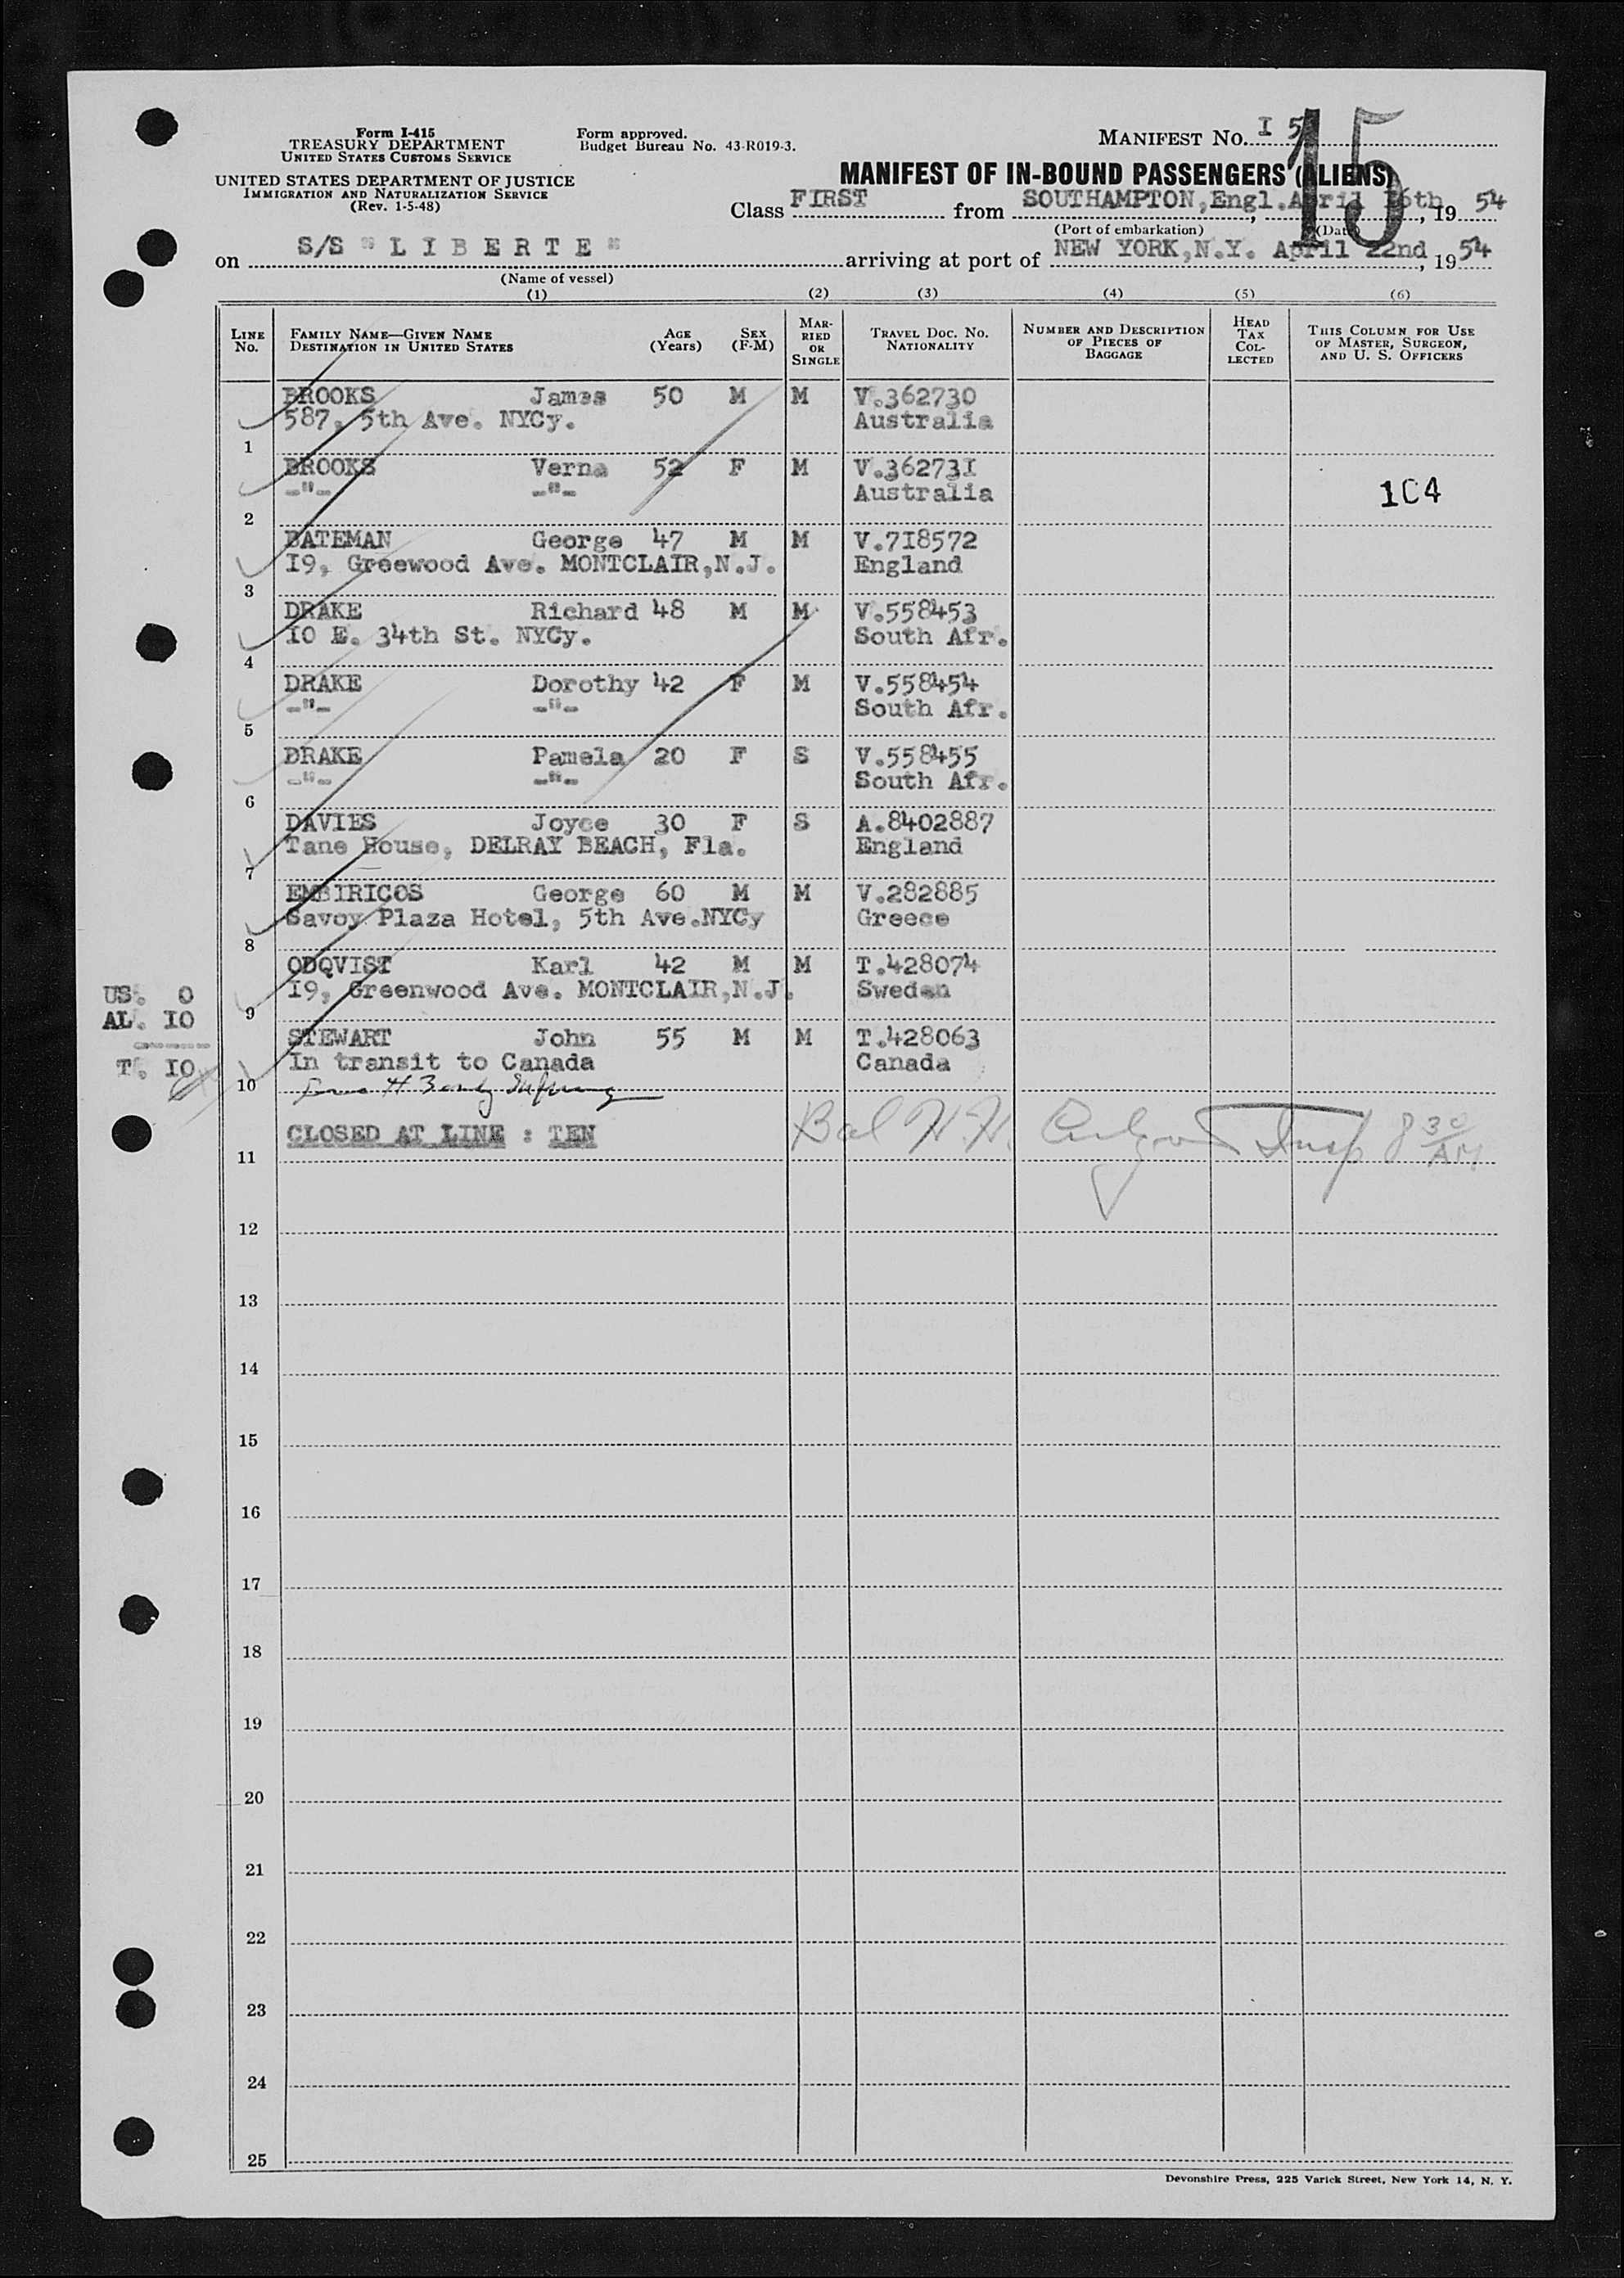 Form I-415
TREASURY DEPARTMENT
UNITED STATES CUSTOMS SERVICE
UNITED STATES DEPARTMENT OF JUSTICE
IMMIGRATION AND NATURALIZATION SERVICE
(Rev. 1-5-48)
Form approved.
Budget Bureau No. 43-R019-3.
MANIFEST No. I 5
15
MANIFEST OF IN-BOUND PASSENGERS (ALIENS)
Class FIRST from SOUTHAMPTON,Engl. April 16th, 19 54
(Port of embarkation) (Date)
on S/S "L I B E R T E" arriving at port of NEW YORK,N.Y. April 22nd, 19 54
(Name of vessel)
(1) (2) (3) (4) (5) (6)
LINE No. FAMILY NAME—GIVEN NAME DESTINATION IN UNITED STATES AGE (Years) SEX (F-M) MARRIED OR SINGLE TRAVEL DOC. NO. NATIONALITY NUMBER AND DESCRIPTION OF PIECES OF BAGGAGE HEAD TAX COLLECTED THIS COLUMN FOR USE OF MASTER, SURGEON, AND U. S. OFFICERS
BROOKS James 50 M M V.362730
587, 5th Ave. NYCy. Australia
1
BROOKS Verna 52 F M V.36273I
-"- -"- Australia
104
2
BATEMAN George 47 M M V.7I8572
I9, Greewood Ave. MONTCLAIR,N.J. England
3
DRAKE Richard 48 M M V.558453
I0 E. 34th St. NYCy. South Afr.
4
DRAKE Dorothy 42 F M V.558454
-"- -"- South Afr.
5
DRAKE Pamela 20 F S V.558455
-"- -"- South Afr.
6
DAVIES Joyce 30 F S A.8402887
Tane House, DELRAY BEACH, Fla. England
7
EMBIRICOS George 60 M M V.282885
Savoy Plaza Hotel, 5th Ave.NYCy Greece
8
ODQVIST Karl 42 M M T.428074
I9, Greenwood Ave. MONTCLAIR,N.J. Sweden
9
US. 0
AL. I0
T. I0
STEWART John 55 M M T.428063
In transit to Canada Canada
10
CLOSED AT LINE : TEN
Insp 8 30 AM
11
12
13
14
15
16
17
18
19
20
21
22
23
24
25
Devonshire Press, 225 Varick Street, New York 14, N. Y.